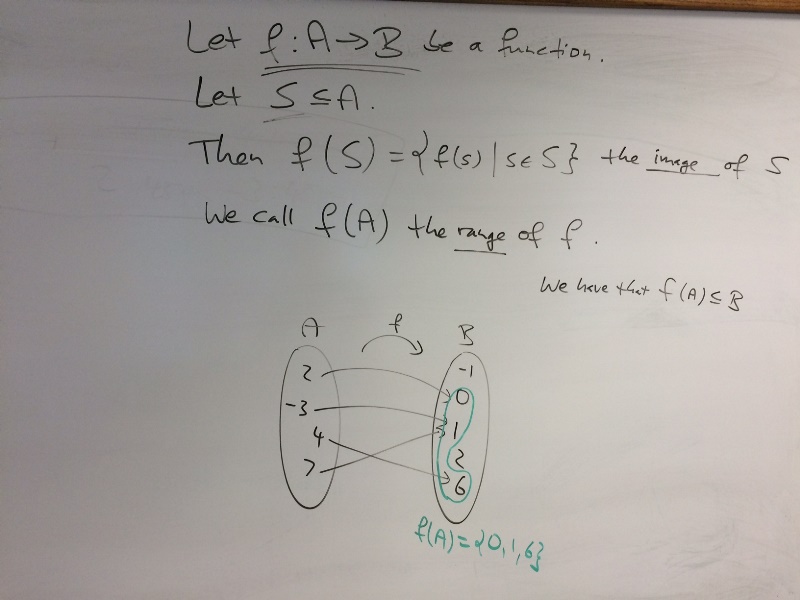 Let f : A → B be a function.
Let S ⊆ A.
Then f(S) = {f(s) | s ∈ S} the image of S
We call f(A) the range of f.
We have that f(A) ⊆ B
A f B
2 -1
-3 0
4 1
7 2
6
f(A) = {0, 1, 6}